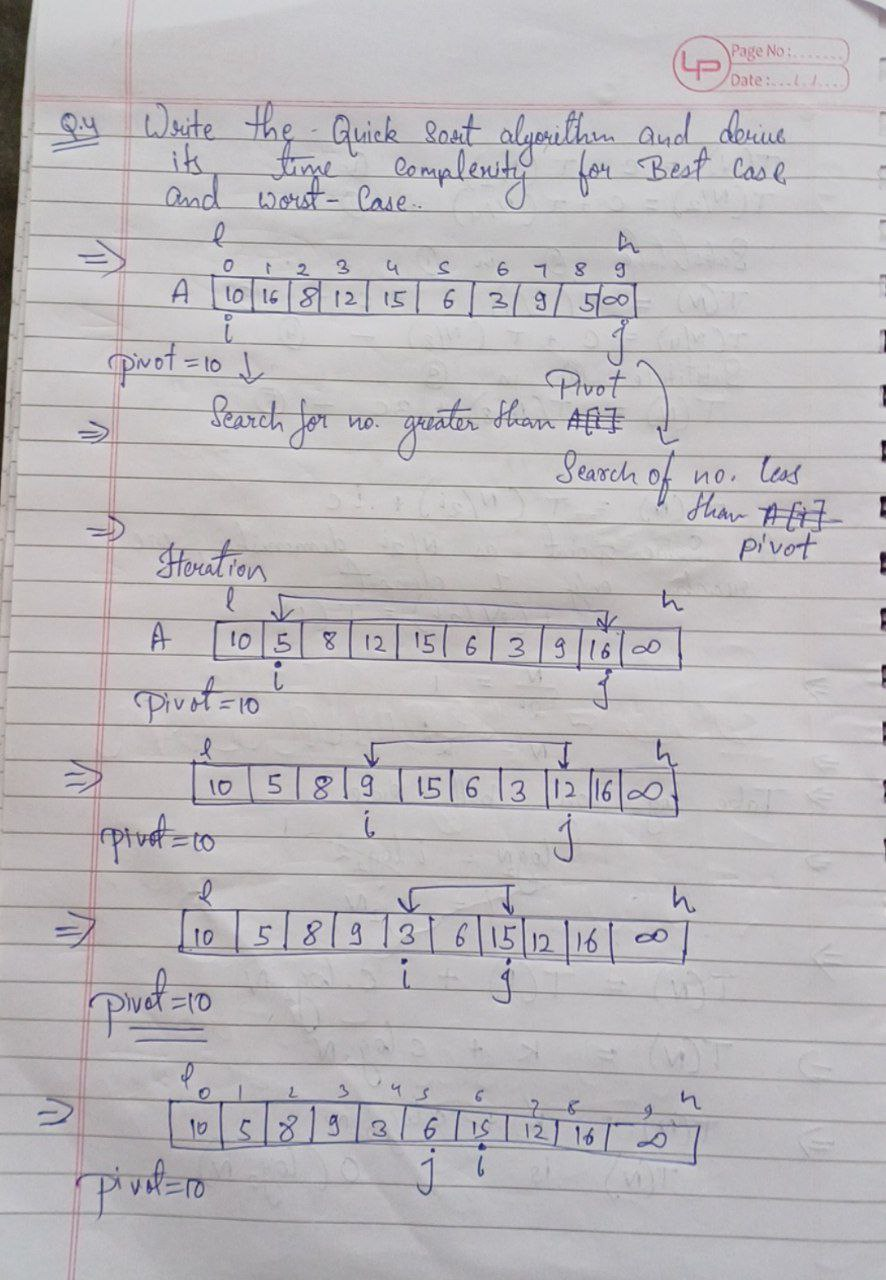 LP
Page No:.......
Date:...../..../....
Q.4 Write the Quick sort algorithm and derive
its time complexity for Best Case
and worst-Case..
l h
0 1 2 3 4 5 6 7 8 9
A 10 16 8 12 15 6 3 9 5 ∞
i j
pivot=10
Pivot
⇒ Search for no. greater than A[i]
Search of no. less
than A[i]
pivot
Iteration
l h
A 10 5 8 12 15 6 3 9 16 ∞
i j
pivot=10
l h
⇒ 10 5 8 9 15 6 3 12 16 ∞
i j
pivot=10
l h
⇒ 10 5 8 9 3 6 15 12 16 ∞
i j
pivot=10
l h
0 1 2 3 4 5 6 7 8 9
⇒ 10 5 8 9 3 6 15 12 16 ∞
j i
pivot=10